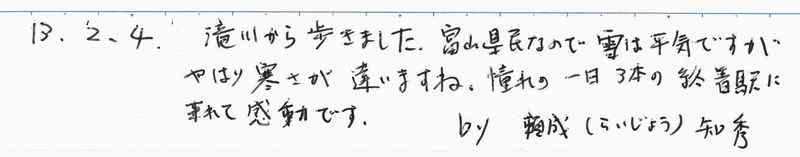 13.2.4. 滝川から歩きました。富山県民なので雪は平気ですが
やはり寒さが違いますね。憧れの一日3本の終着駅に
来れて感動です。
by 頼成(らいじょう)知秀